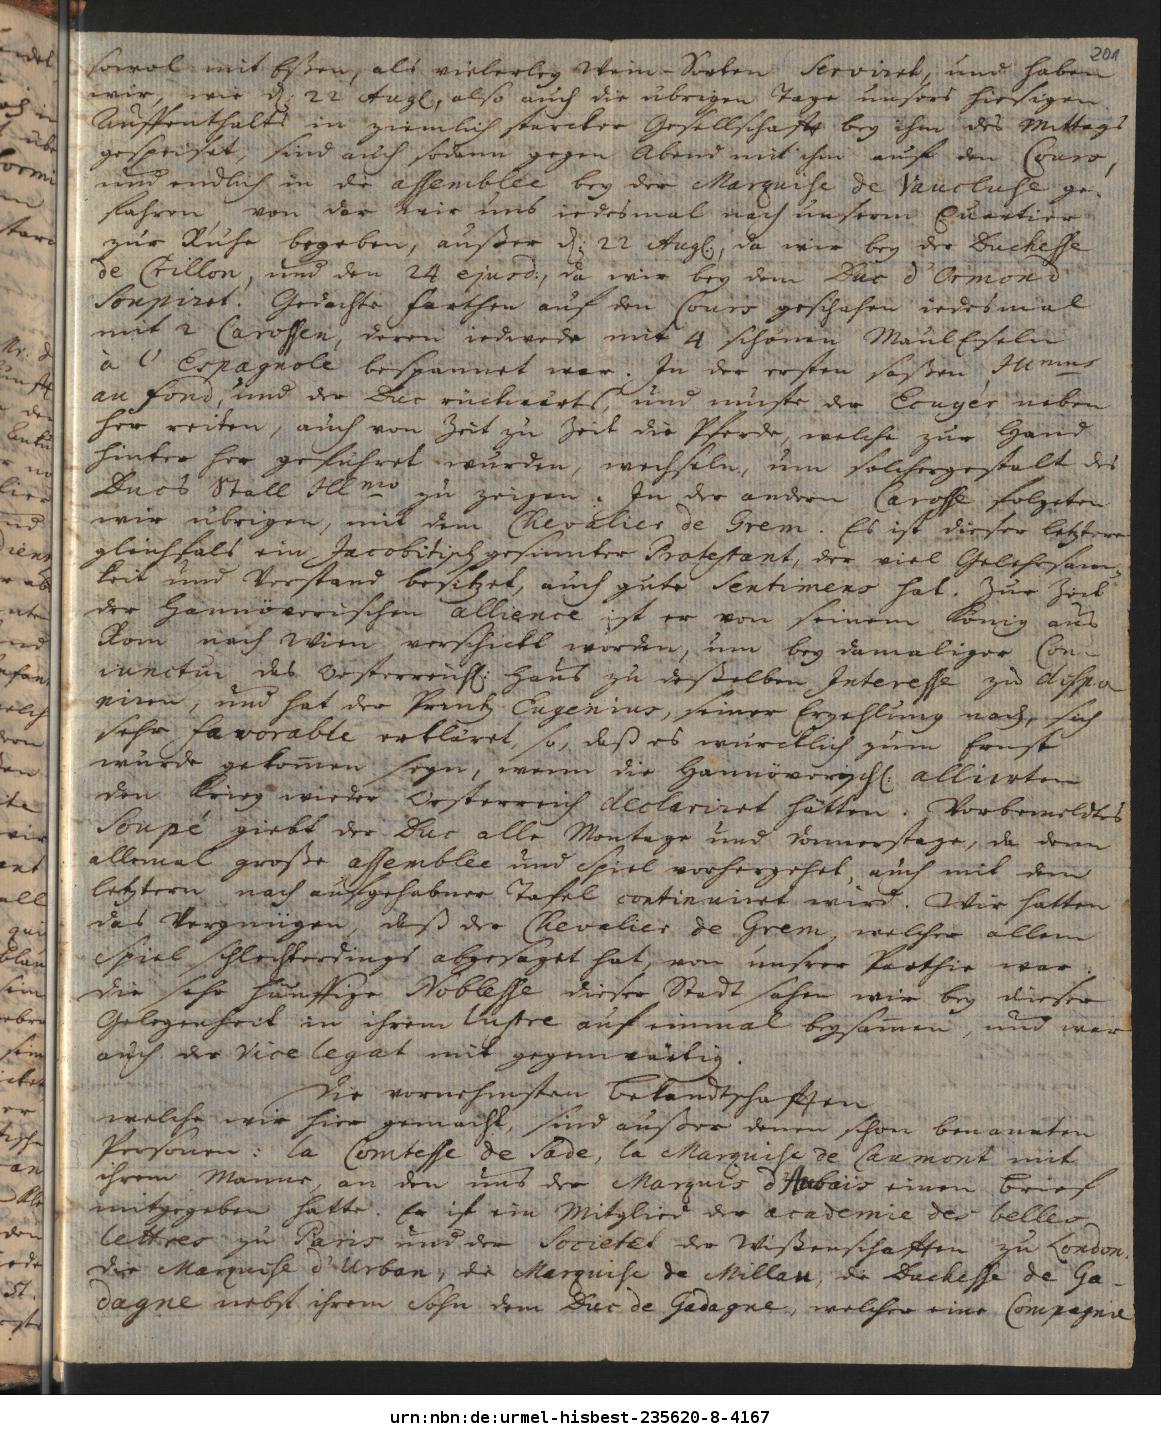 201
sowol mit Eßen, als vielerley Wein-Sorten Serviret, und haben
wir, wie d. 22 Augl., also auch die übrigen Tage unsers hiesigen
Auffenthalts in ziemlich starcker Gesellschafft bey ihm des Mittags
gespeiset, sind auch sodann gegen Abend mit ihm auf den Cours,
und endlich in die assemblee bey der Marquise de Vaucluse ge-
fahren, von dar wir uns iedesmal nach unserm Quartier
zur Ruhe begeben, außer d. 22 Augl., da wir bey der Duchesse
de Crillon, und den 24 ejusd., da wir bey dem Duc d'Ormond
Soupiret. Gedachte Farthen auf den Cours geschahen iedesmal
mit 2 Carossen, deren iedwede mit 4 schönen MaulEseln
à l'Espagnole bespannet war. In der ersten saßen Illmus
au fond, und der Duc rückwärts, und muste der Ecuyer neben
her reiten, auch von Zeit zu Zeit die Pferde, welche zur Hand
hinter her geführet wurden, wechseln, um solchergestalt des
Ducs Stall Illmo zu zeigen. In der andern Carosse folgeten
wir übrigen, mit dem Chevalier de Grem. Es ist dieser letztere
gleichfals ein Jacobitisch gesinnter Protestant, der viel Gelehrsam-
keit und Verstand besitzet, auch gute Sentimens hat. Zur Zeit
der Hannöverischen allience ist er von seinem König aus
Rom nach Wien verschickt worden, um bey damaliger Con-
iunctur das Oesterreichl. Haus zu deßelben Interesse zu dispo-
niren, und hat der Printz Eugenius, seiner Erzehlung nach, sich
sehr favorable erkläret, so, daß es würcklich zum Ernst
würde gekommen seyn, wenn die Hannöverischl. alliirten
den Krieg wieder Oesterreich declariret hätten. Vorbemeldtes
Soupé giebt der Duc alle Montage und Donnerstage, da denn
allemal große assemblee und Spiel vorhergehet, auch mit dem
letztern nach aufgehabner Tafel continuiret wird. Wir hatten
das Vergnügen, daß der Chevalier de Grem, welcher allem
Spiel schlechterdings abgesaget hat, von unsrer Parthie war.
Die sehr häuffige Noblesse dieser Stadt sahen wir bey dieser
Gelegenheit in ihrem lustre auf einmal beysammen, und war
auch der Vicelegat mit gegenwärtig.
Die vornehmsten Bekandtschafften
welche wir hier gemacht, sind außer denen schon benannten
Personen: la Comtesse de Sade, la Marquise de Caumont mit
ihrem Manne, an den uns der Marquis d'Aubais einen Brief
mitgegeben hatte. Er ist ein Mitglied der academie des belles
lettres zu Paris und der Societet der Wißenschafften zu London.
die Marquise d'Urban, die Marquise de Millau, die Duchesse de Ga-
dagne nebst ihrem Sohn dem Duc de Gadagne, welcher eine Compagnie
urn:nbn:de:urmel-hisbest-235620-8-4167